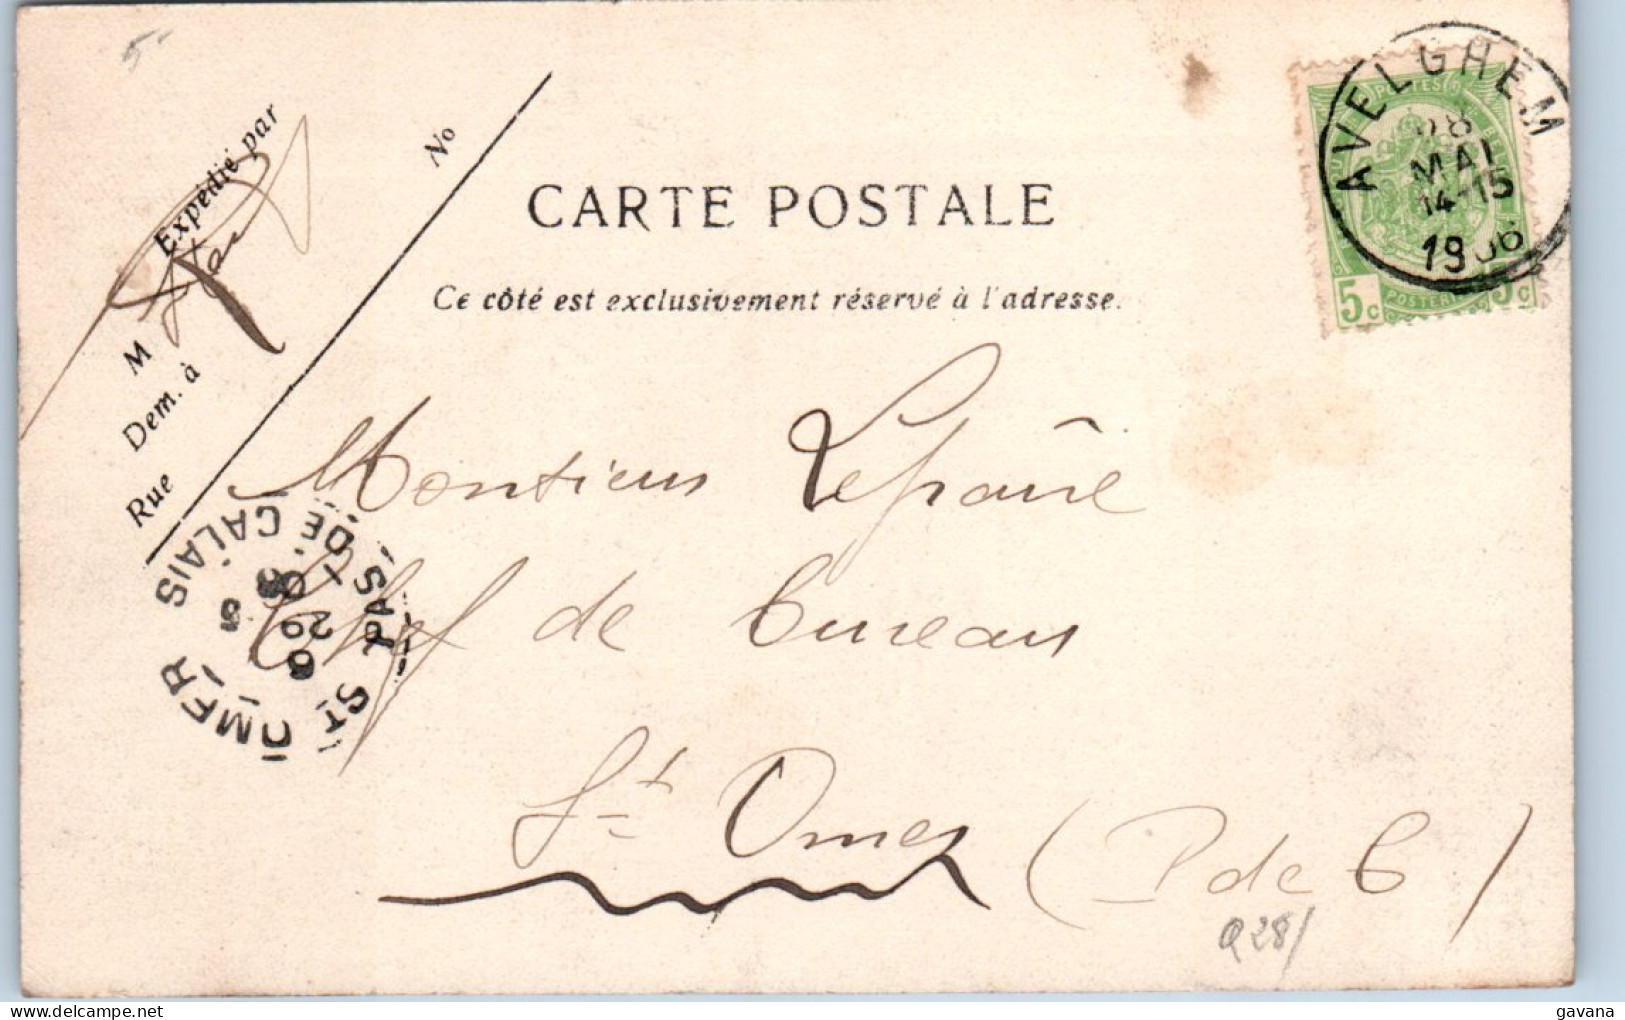 5-
Expédié par
No
M
Dem. à
Rue
CARTE POSTALE
Ce côté est exclusivement réservé à l'adresse.
AVELGHEM
28
MAI
14-15
1906
POSTES
5c 5c
Monsieur Lepaire
Chef de bureau
St Omer (P de C)
Q28/
ST OMER
PAS DE CALAIS
29
gavana